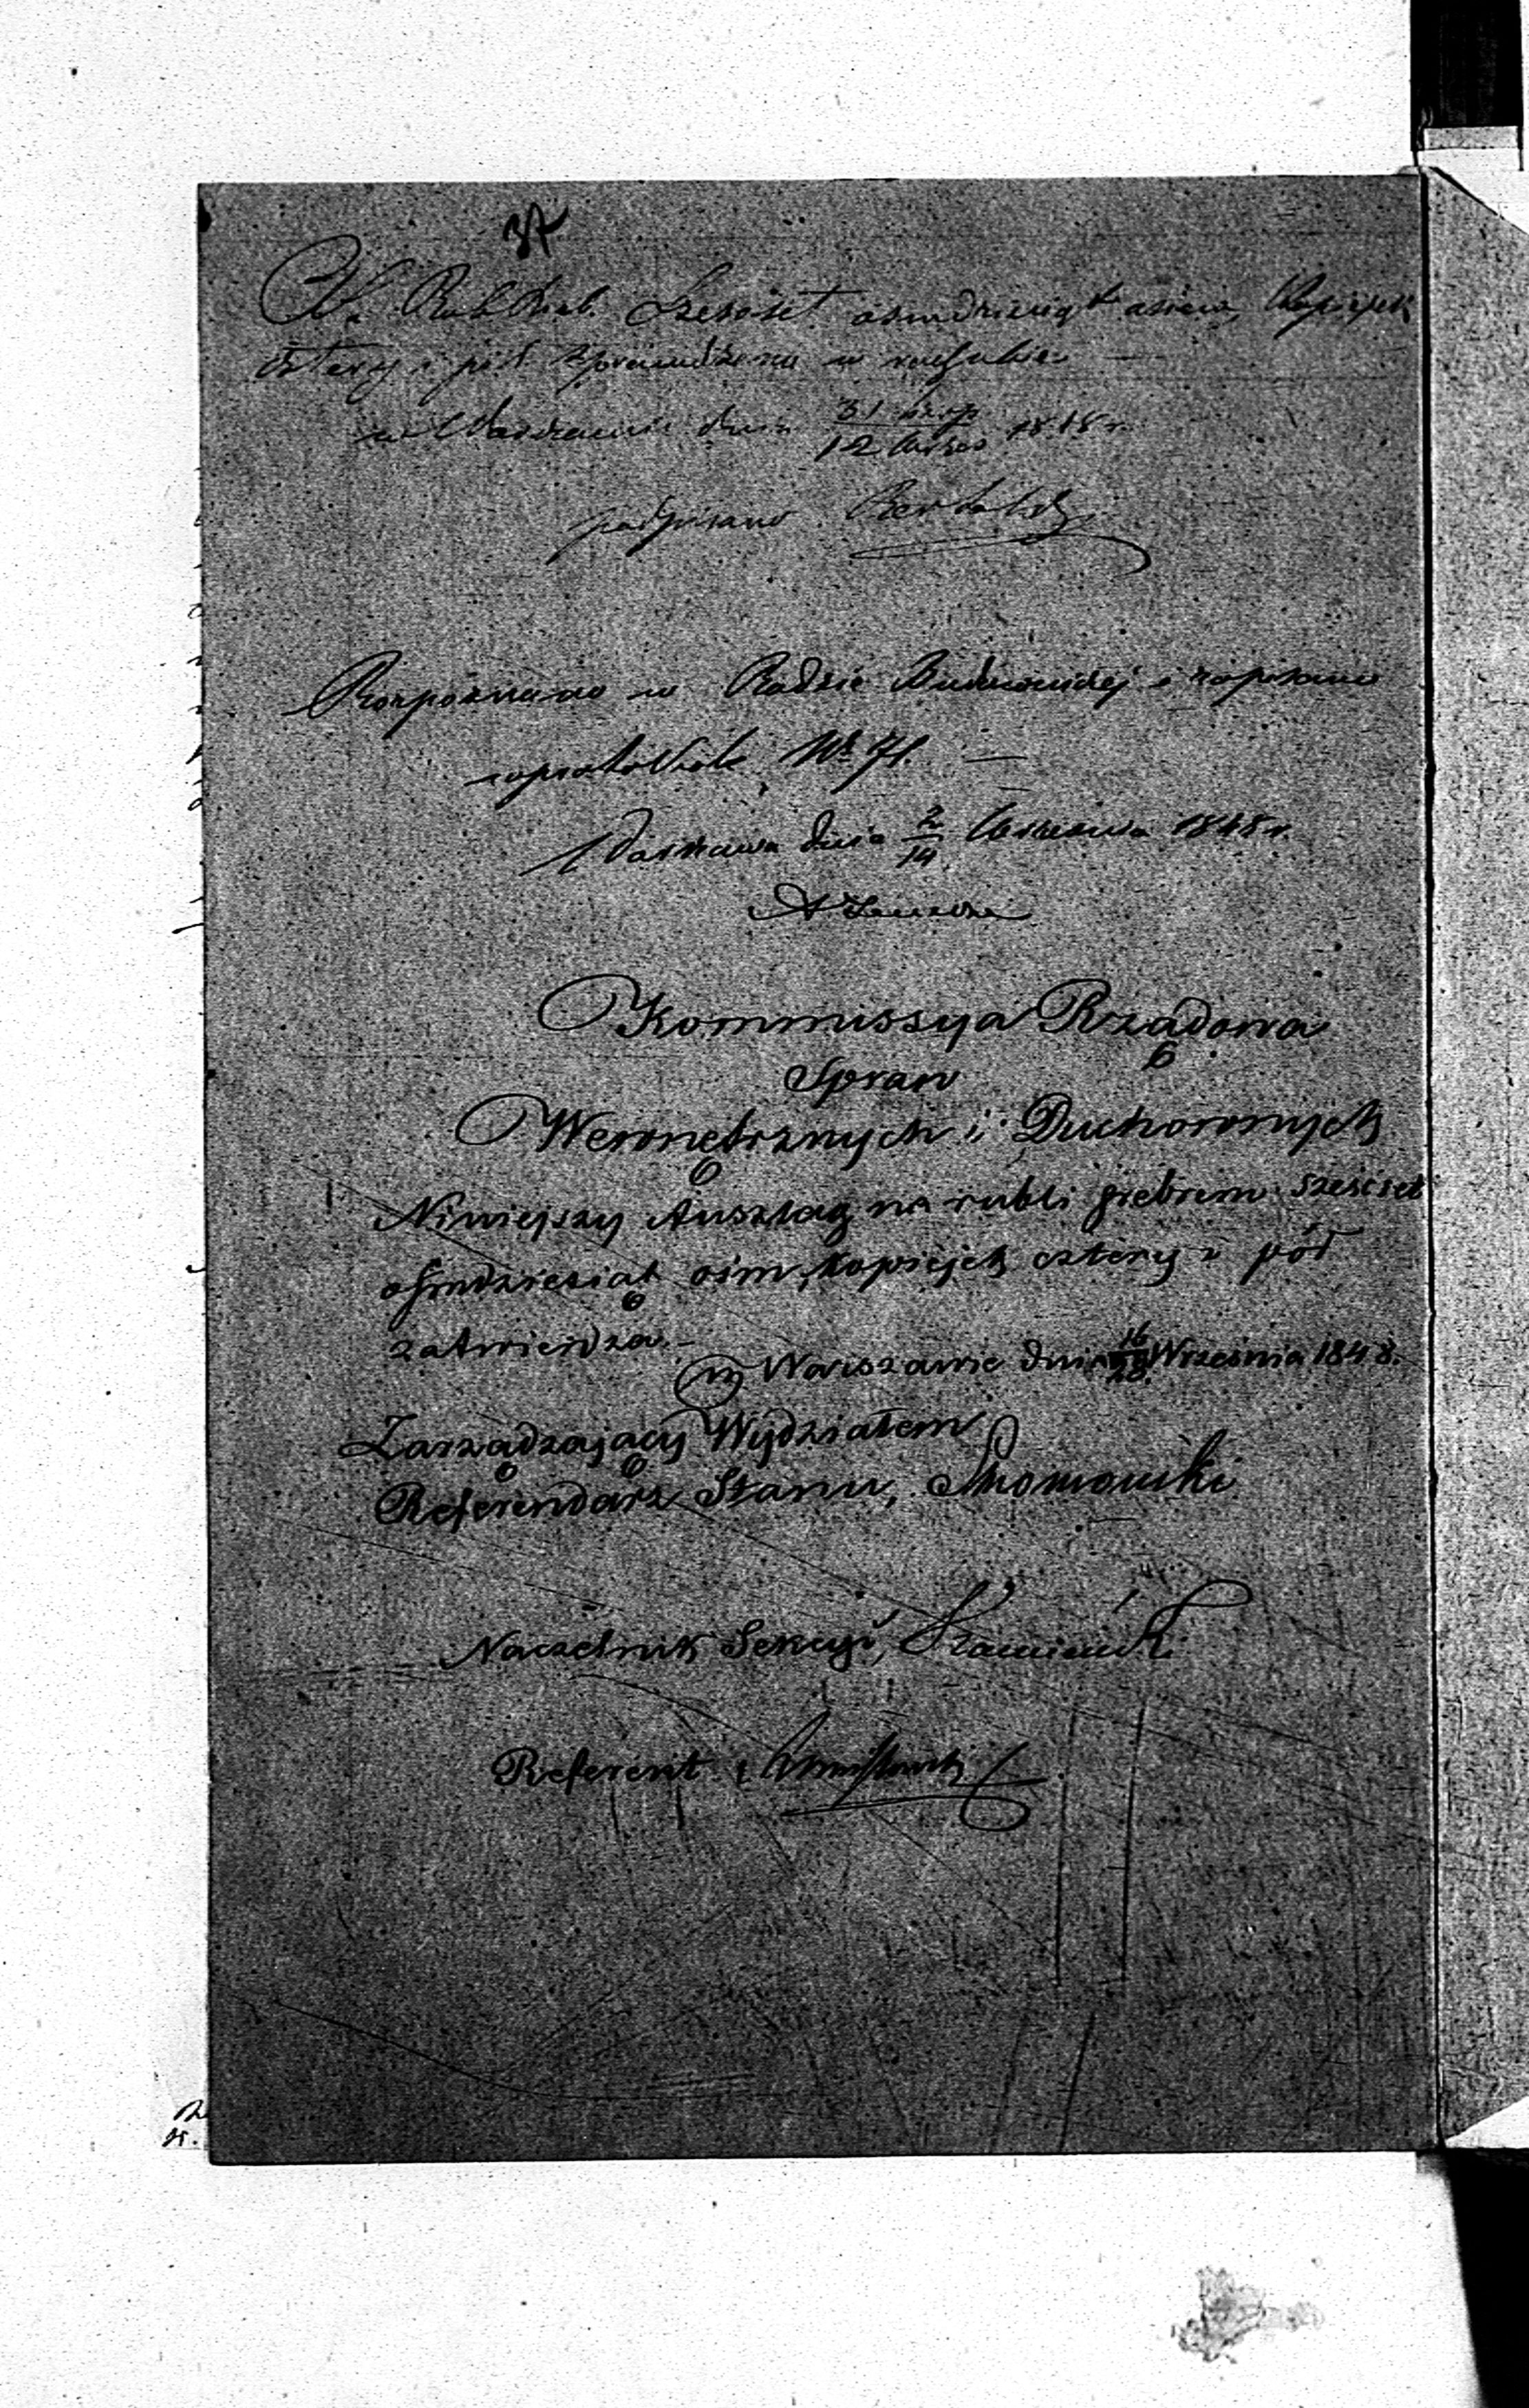 37
Na Rub. sreb. Sześćset ośmdziesiąt ośiem, kopiejek
cztery i pół sprawdzono w rachubie
w Warszawie dnia 31 sierp / 12 Wrześ 1848 r.
podpisano
Rozpoznano w Radzie Budowniczej i zapisano
w protokule No 71.
Warszawa dnia 2/14 Września 1848 r.
Kommissya Rządowa
Spraw
Wewnętrznych i Duchownych
Niniejszy Anszlag na rubli srebrem sześćset
ośmdziesiąt ośm, kopiejek cztery i pół
zatwierdza.
w Warszawie dnia 16/28 Września 1848.
Zarządzający Wydziałem
Referendarz Stanu,
Naczelnik Sekcyi, Kamieński
Referent